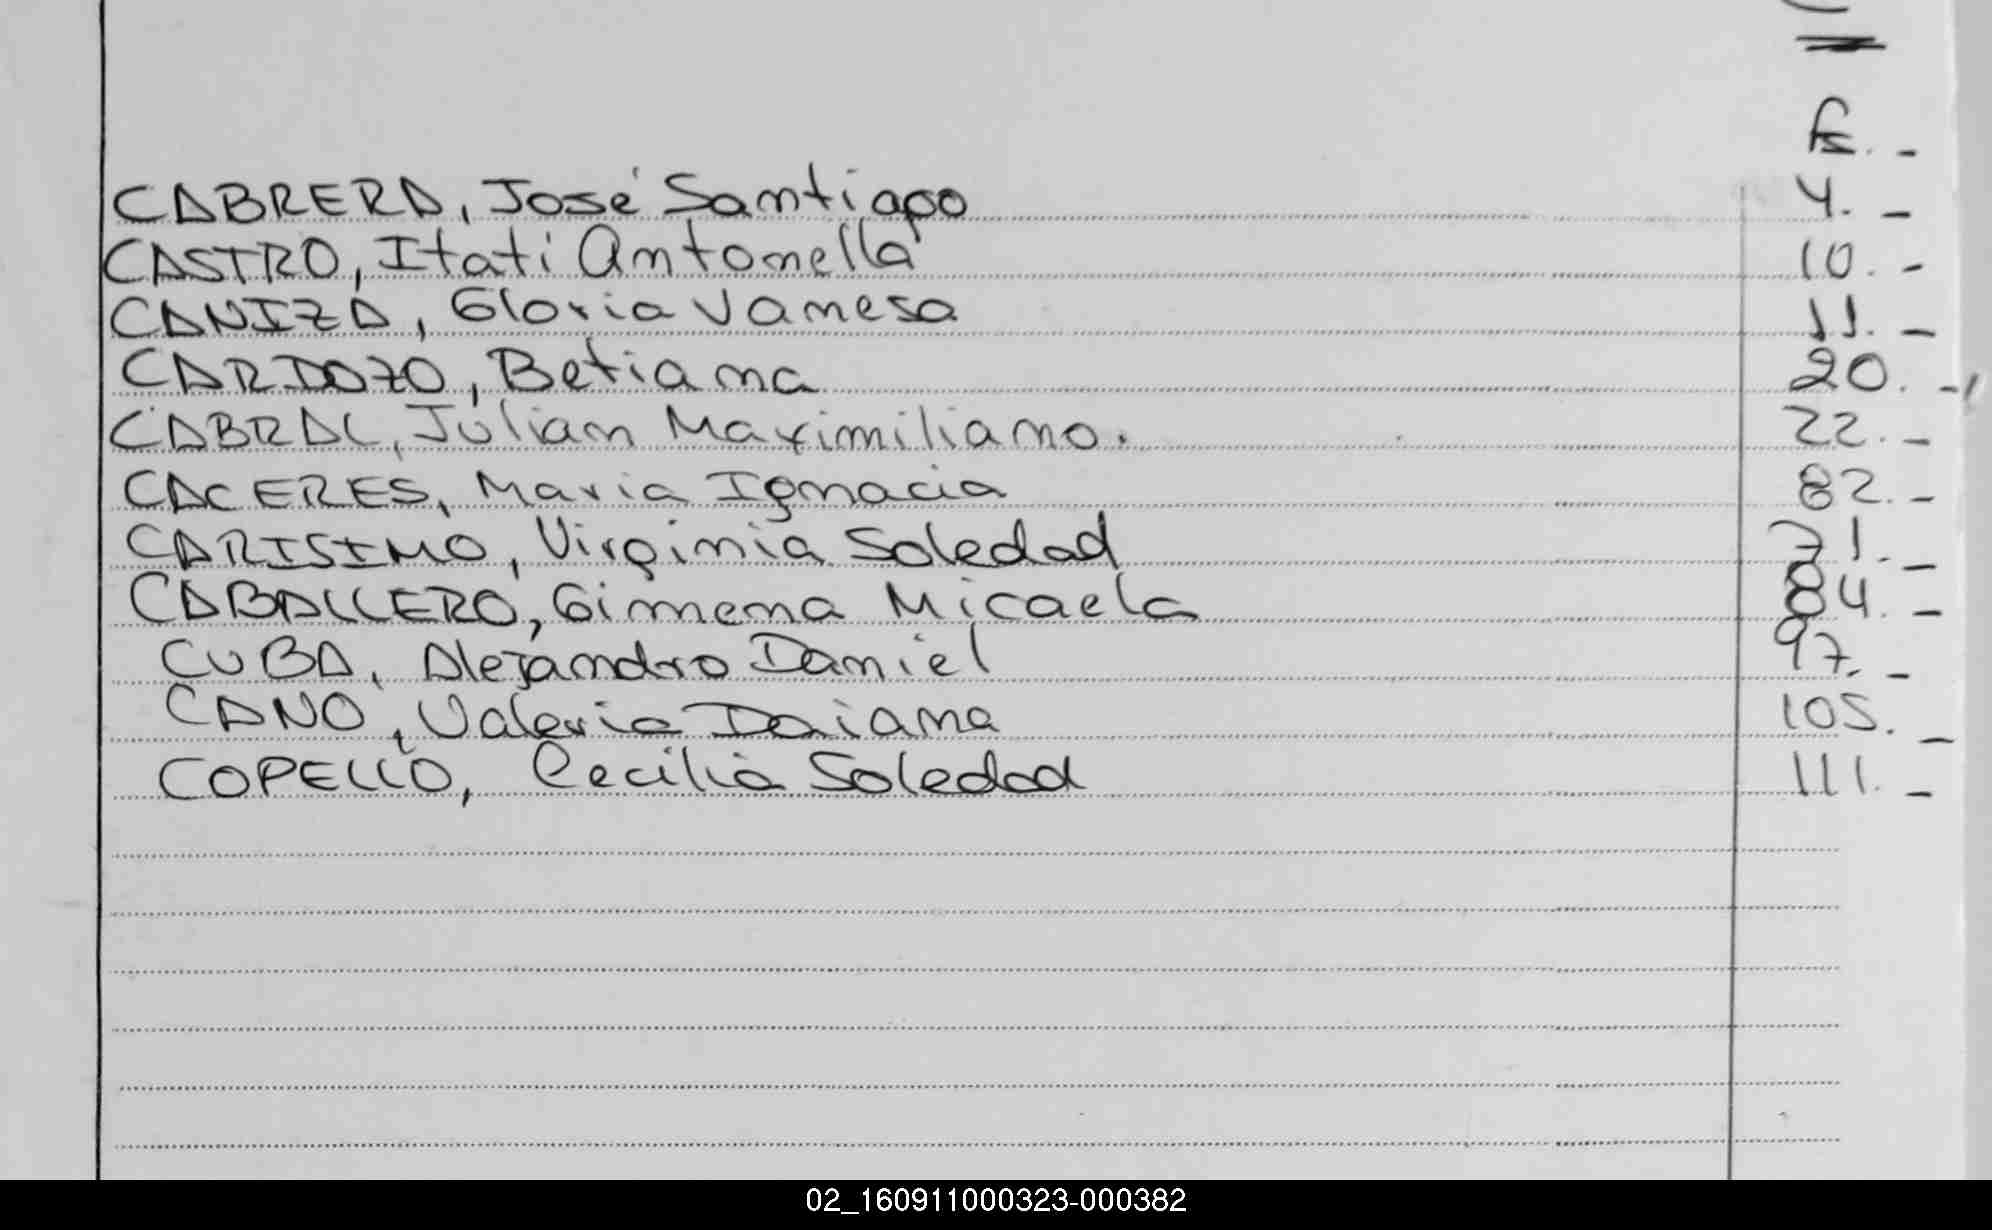 Fs. -
CABRERA, José Santiago 4. -
CASTRO, Itati Antonella 10. -
CANIZA, Gloria Vanesa 11. -
CARDOZO, Betiana 20. -
CABRAL, Julian Maximiliano. 22. -
CACERES, Maria Ignacia 82. -
CARISIMO, Virginia Soledad 71. -
CABALLERO, Gimena Micaela 84. -
CUBA, Alejandro Daniel 97. -
CANO, Valeria Daiana 105. -
COPELLO, Cecilia Soledad 111. -
02_160911000323-000382